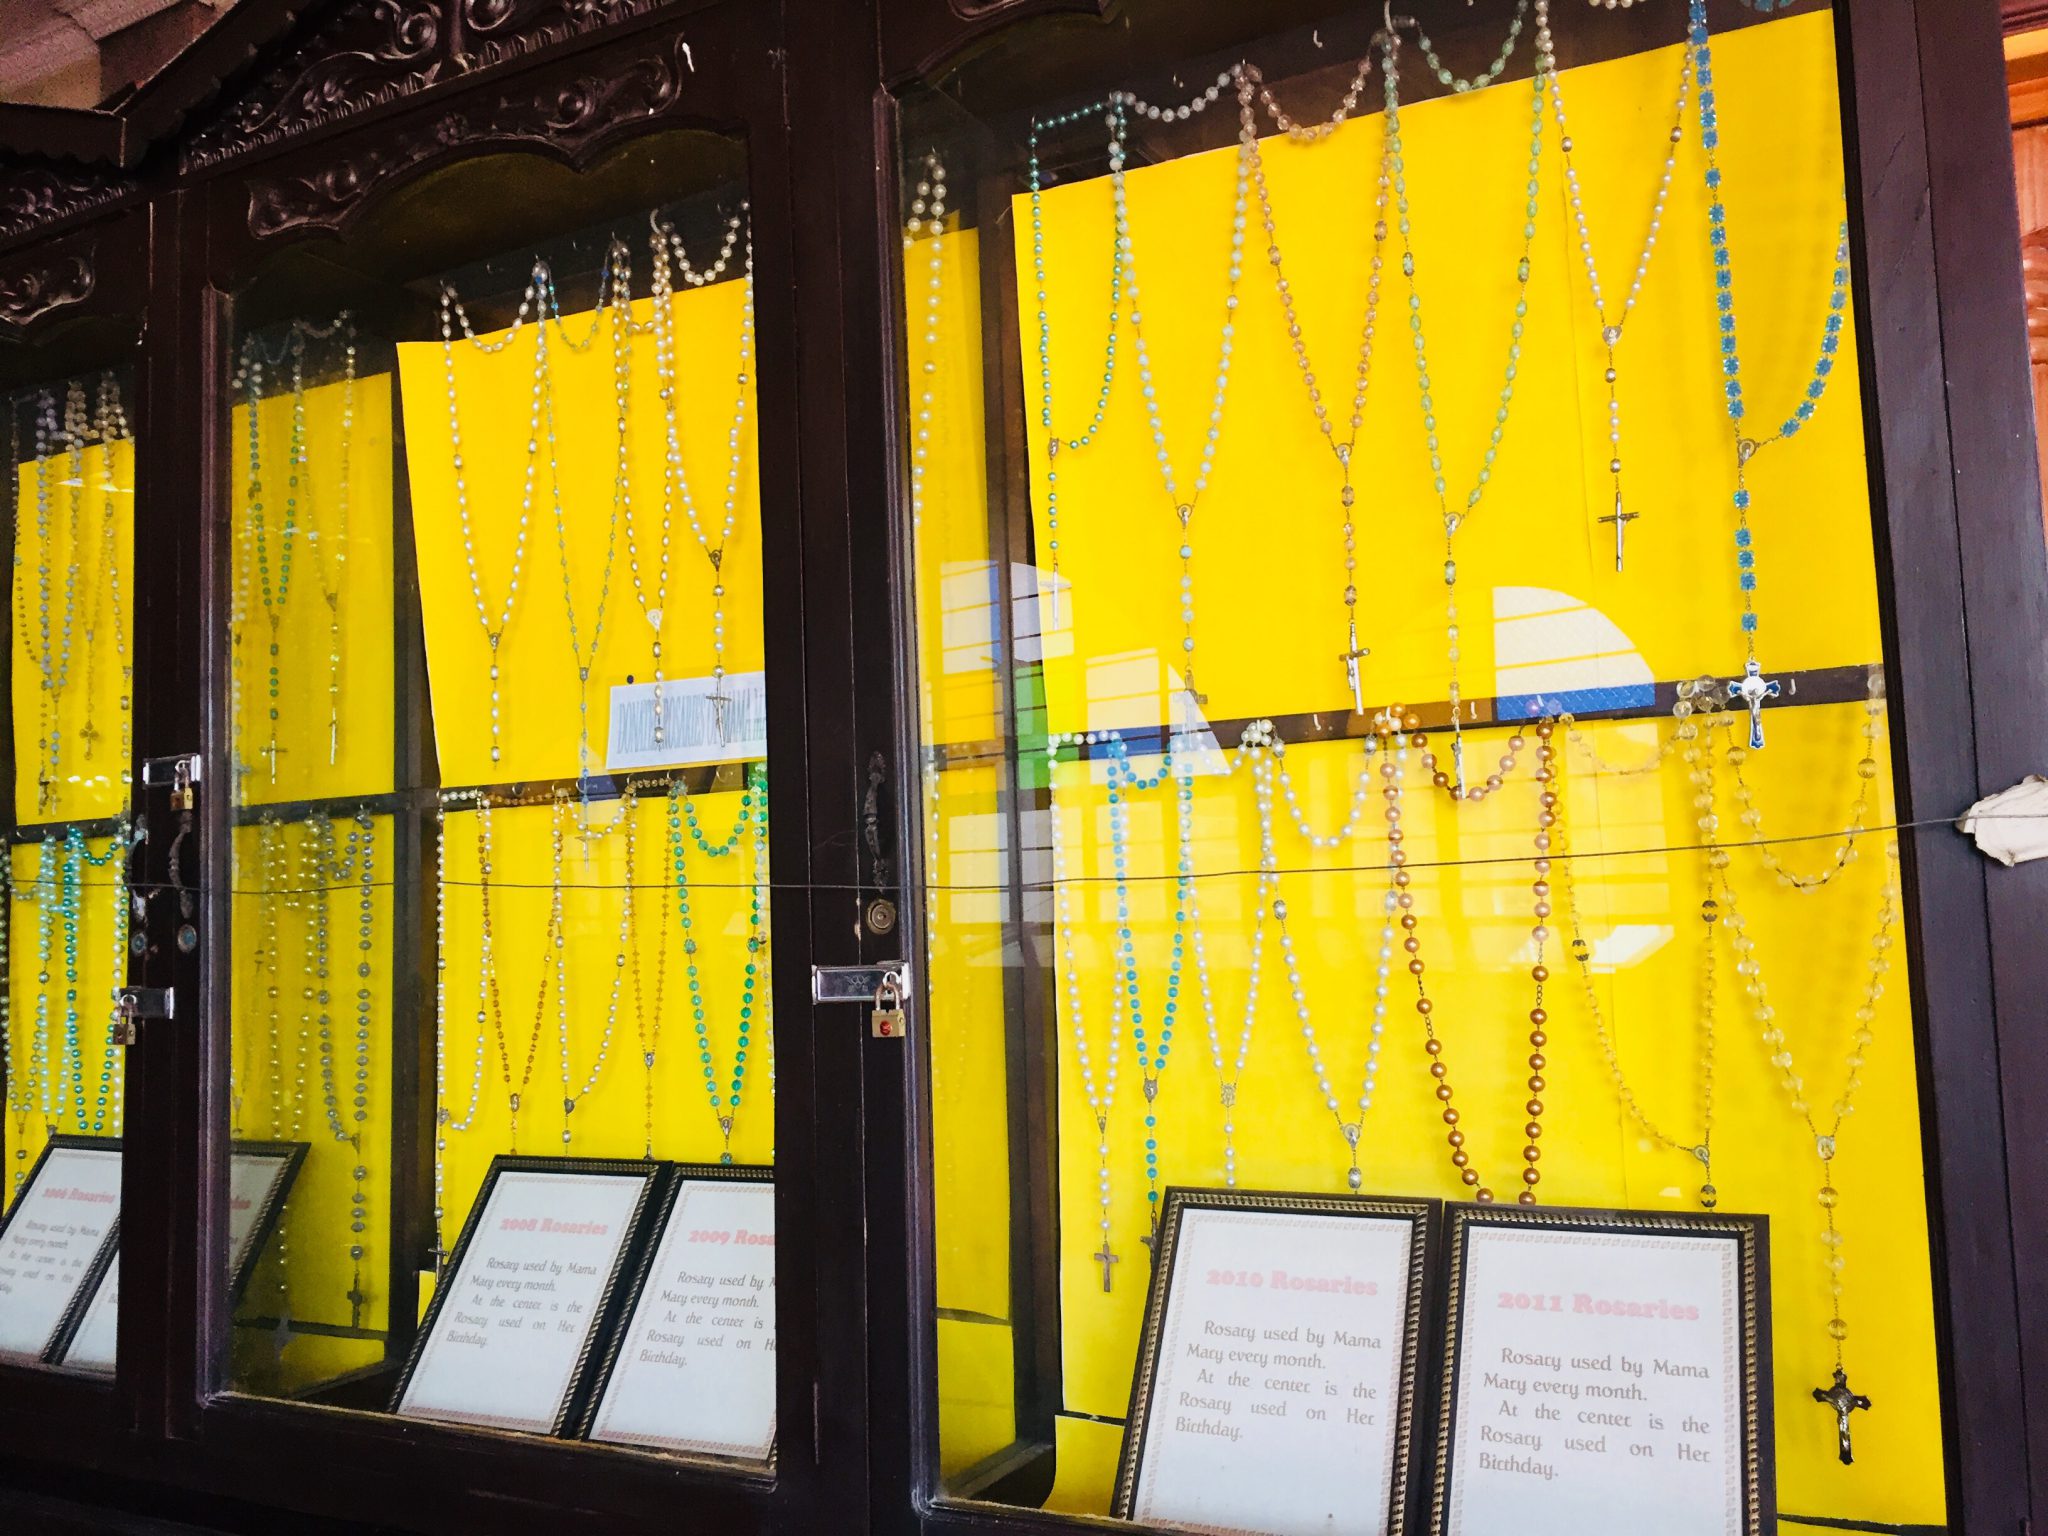 DONATED ROSARIES OF MAMA
2006 Rosaries
Rosary used by Mama
Mary every month.
At the center is the
Rosary used on Her
2008 Rosaries
Rosary used by Mama
Mary every month.
At the center is the
Rosary used on Her
Birthday.
2009 Rosa
Rosary used by
Mary every month.
At the center is
Rosary used on
Birthday.
2010 Rosaries
Rosary used by Mama
Mary every month.
At the center is the
Rosary used on Her
Birthday.
2011 Rosaries
Rosary used by Mama
Mary every month.
At the center is the
Rosary used on Her
Birthday.